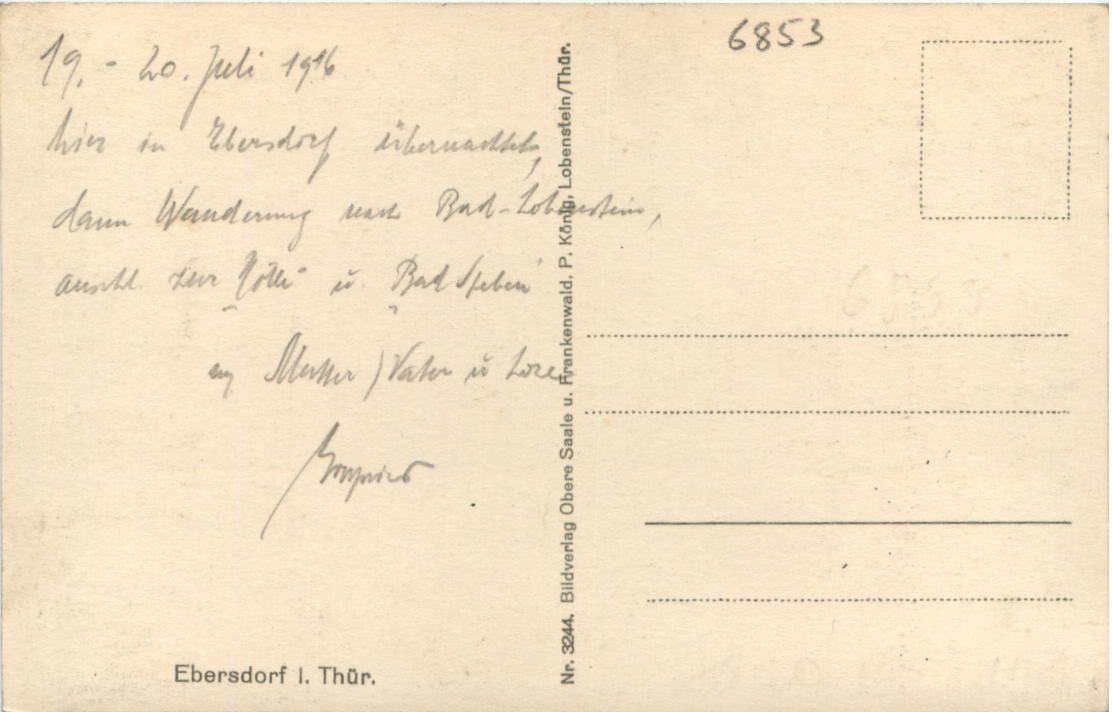 6853
19. - 20. Juli 1916
hier in Ebersdorf übernachtet,
dann Wanderung nach Bad-Lobenstein,
anschl. zur Hölle u. Bad Steben
Mutter, Vater u
Ebersdorf i. Thür.
Nr. 3244. Bildverlag Obere Saale u. Frankenwald, P. König, Lobenstein/Thür.